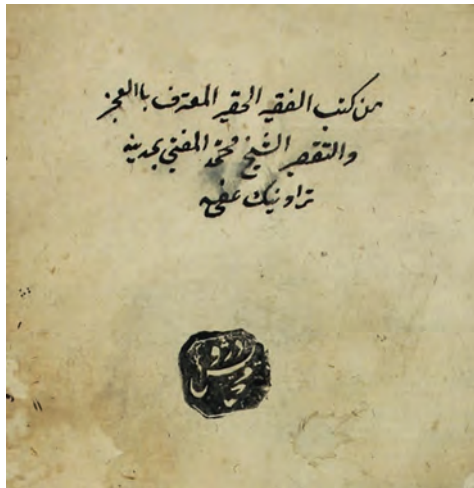 من كتب الفقير الحقير المعترف باالعجز
والتقصير الشيخ محمد المفتي بمدينه
تراونيك عفي عنه
درويش
محمد